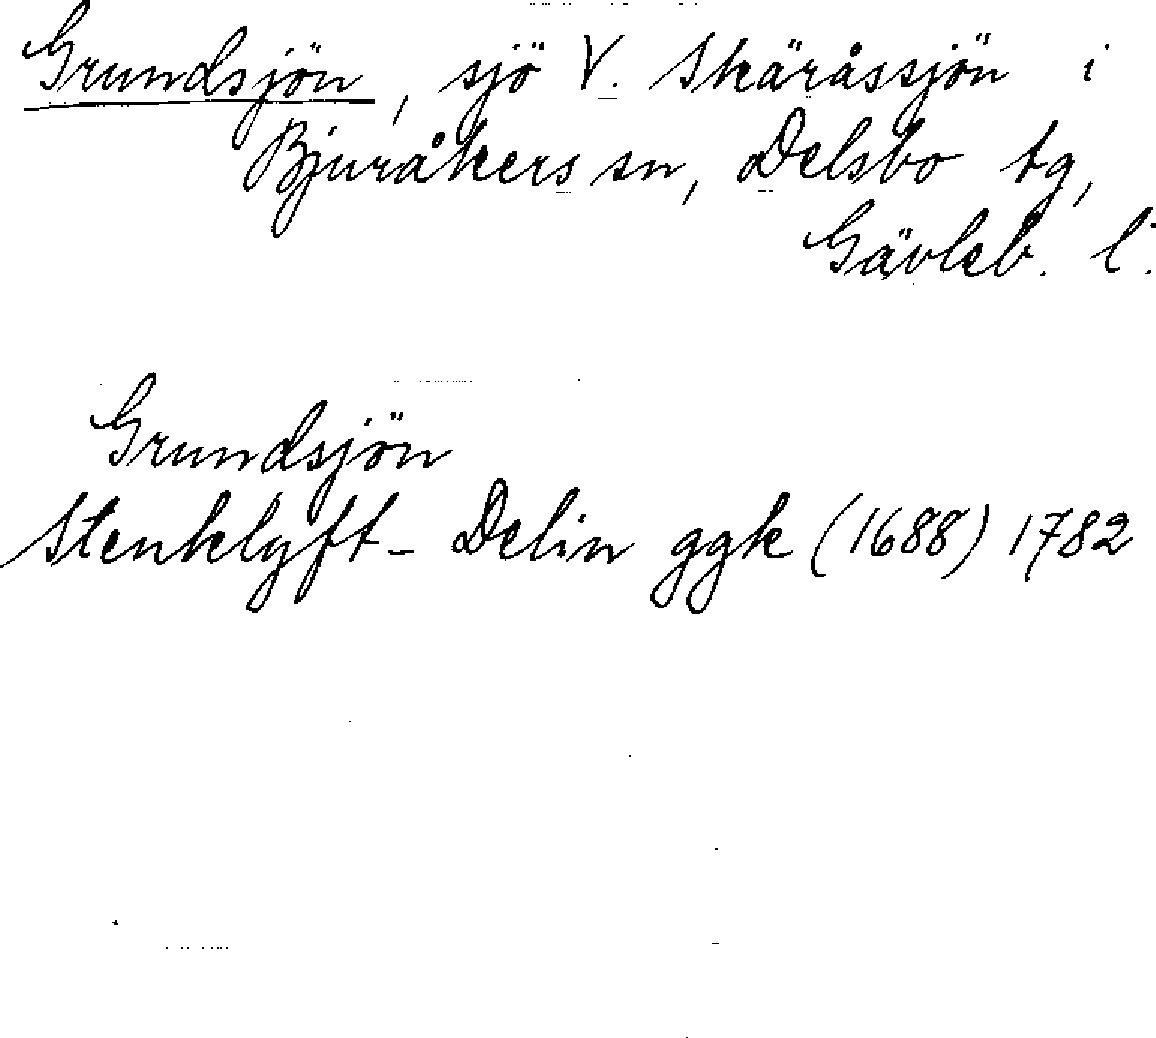 Grundsjön, sjö V. Skäråssjön i
Bjuråkers sn, Delsbo tg,
Gävleb. l.
Grundsjön
Stenklyft- Delin ggk (1688) 1782